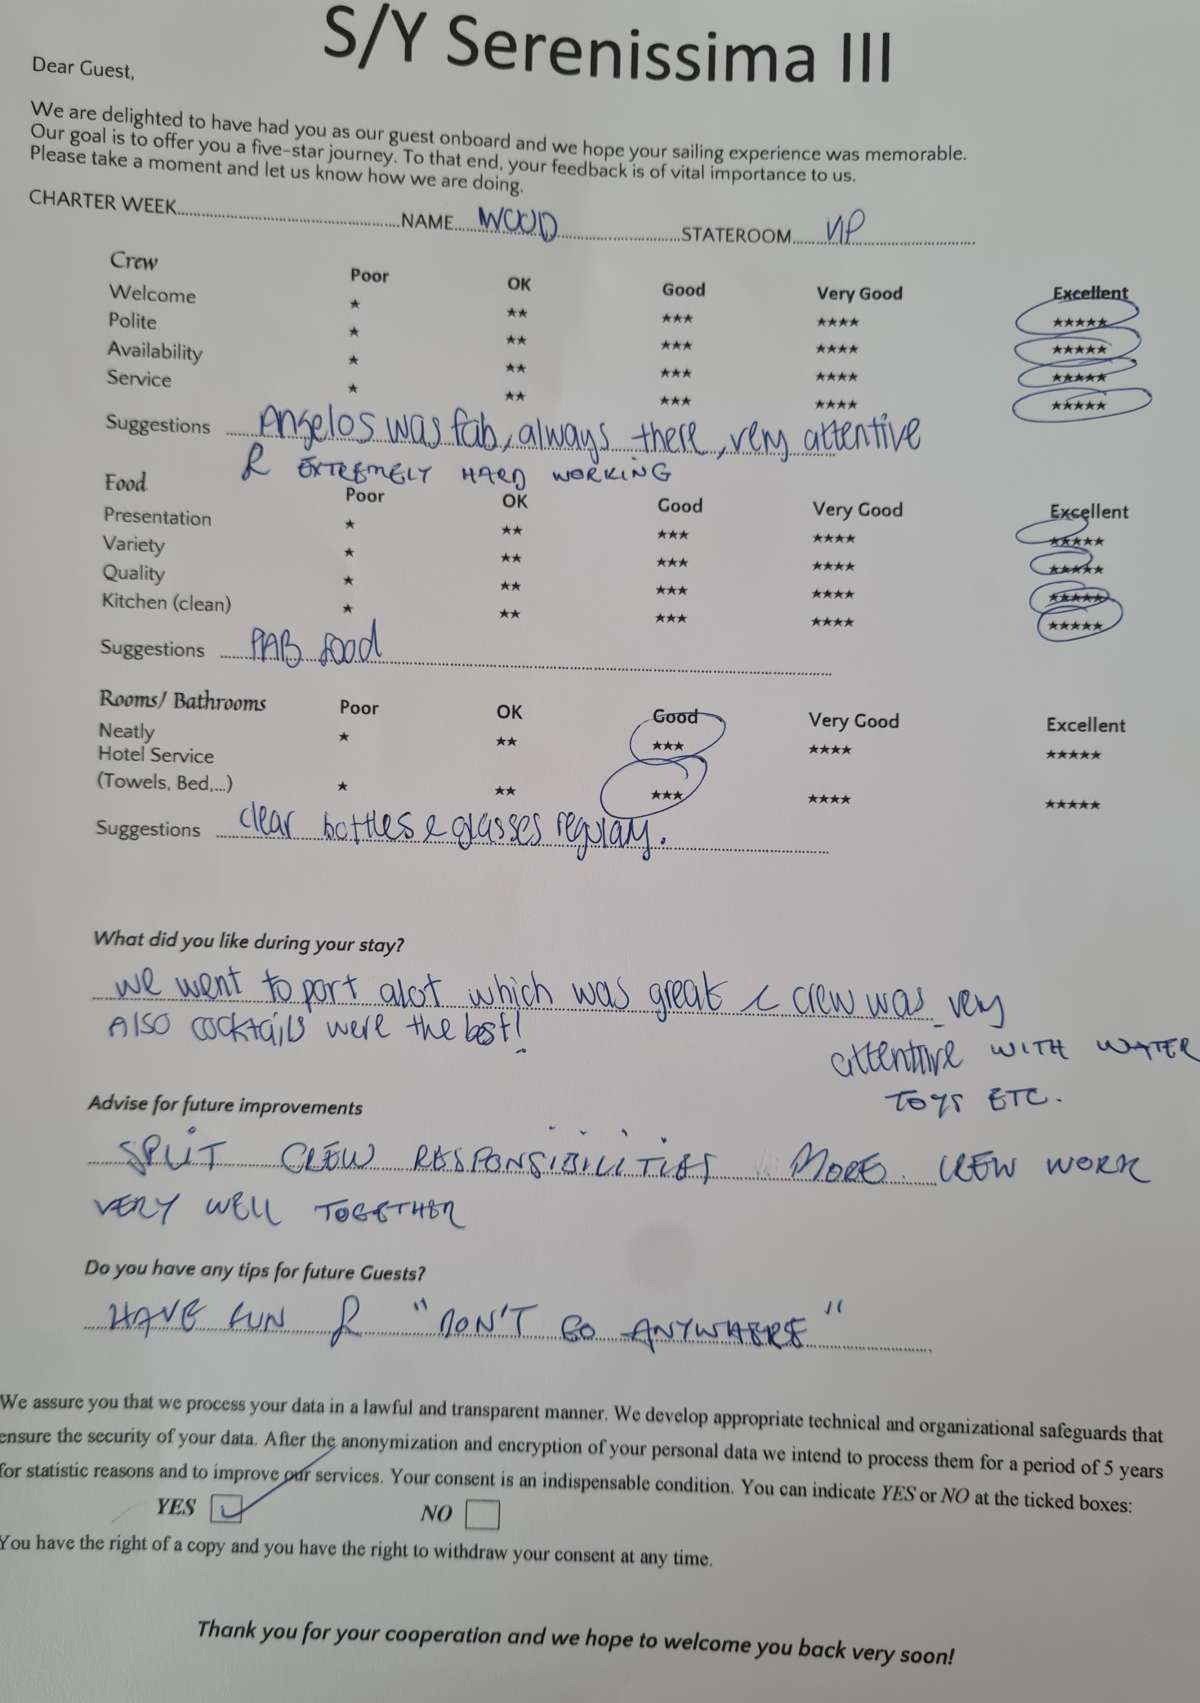 S/Y Serenissima III
Dear Guest,
We are delighted to have had you as our guest onboard and we hope your sailing experience was memorable.
Our goal is to offer you a five-star journey. To that end, your feedback is of vital importance to us.
Please take a moment and let us know how we are doing.
CHARTER WEEK............NAME... WOOD ............STATEROOM... VIP ............
Crew Poor OK Good Very Good Excellent
Welcome ★ ★★ ★★★ ★★★★ ★★★★★
Polite ★ ★★ ★★★ ★★★★ ★★★★★
Availability ★ ★★ ★★★ ★★★★ ★★★★★
Service ★ ★★ ★★★ ★★★★ ★★★★★
Suggestions Angelos was fab, always there, very attentive
& EXTREMELY HARD WORKING
Food Poor OK Good Very Good Excellent
Presentation ★ ★★ ★★★ ★★★★ ★★★★★
Variety ★ ★★ ★★★ ★★★★ ★★★★★
Quality ★ ★★ ★★★ ★★★★ ★★★★★
Kitchen (clean) ★ ★★ ★★★ ★★★★ ★★★★★
Suggestions FAB food
Rooms/ Bathrooms Poor OK Good Very Good Excellent
Neatly ★ ★★ ★★★ ★★★★ ★★★★★
Hotel Service
(Towels, Bed,...) ★ ★★ ★★★ ★★★★ ★★★★★
Suggestions clear bottles & glasses regulary.
What did you like during your stay?
we went to port alot which was great & crew was very
attentive WITH WATER
TOYS ETC.
Also cocktails were the best!
Advise for future improvements
SPLIT CREW RESPONSIBILITIES MORE. CREW WORK
VERY WELL TOGETHER
Do you have any tips for future Guests?
HAVE FUN & "DON'T GO ANYWHERE"
We assure you that we process your data in a lawful and transparent manner. We develop appropriate technical and organizational safeguards that
ensure the security of your data. After the anonymization and encryption of your personal data we intend to process them for a period of 5 years
for statistic reasons and to improve our services. Your consent is an indispensable condition. You can indicate YES or NO at the ticked boxes:
YES NO
You have the right of a copy and you have the right to withdraw your consent at any time.
Thank you for your cooperation and we hope to welcome you back very soon!